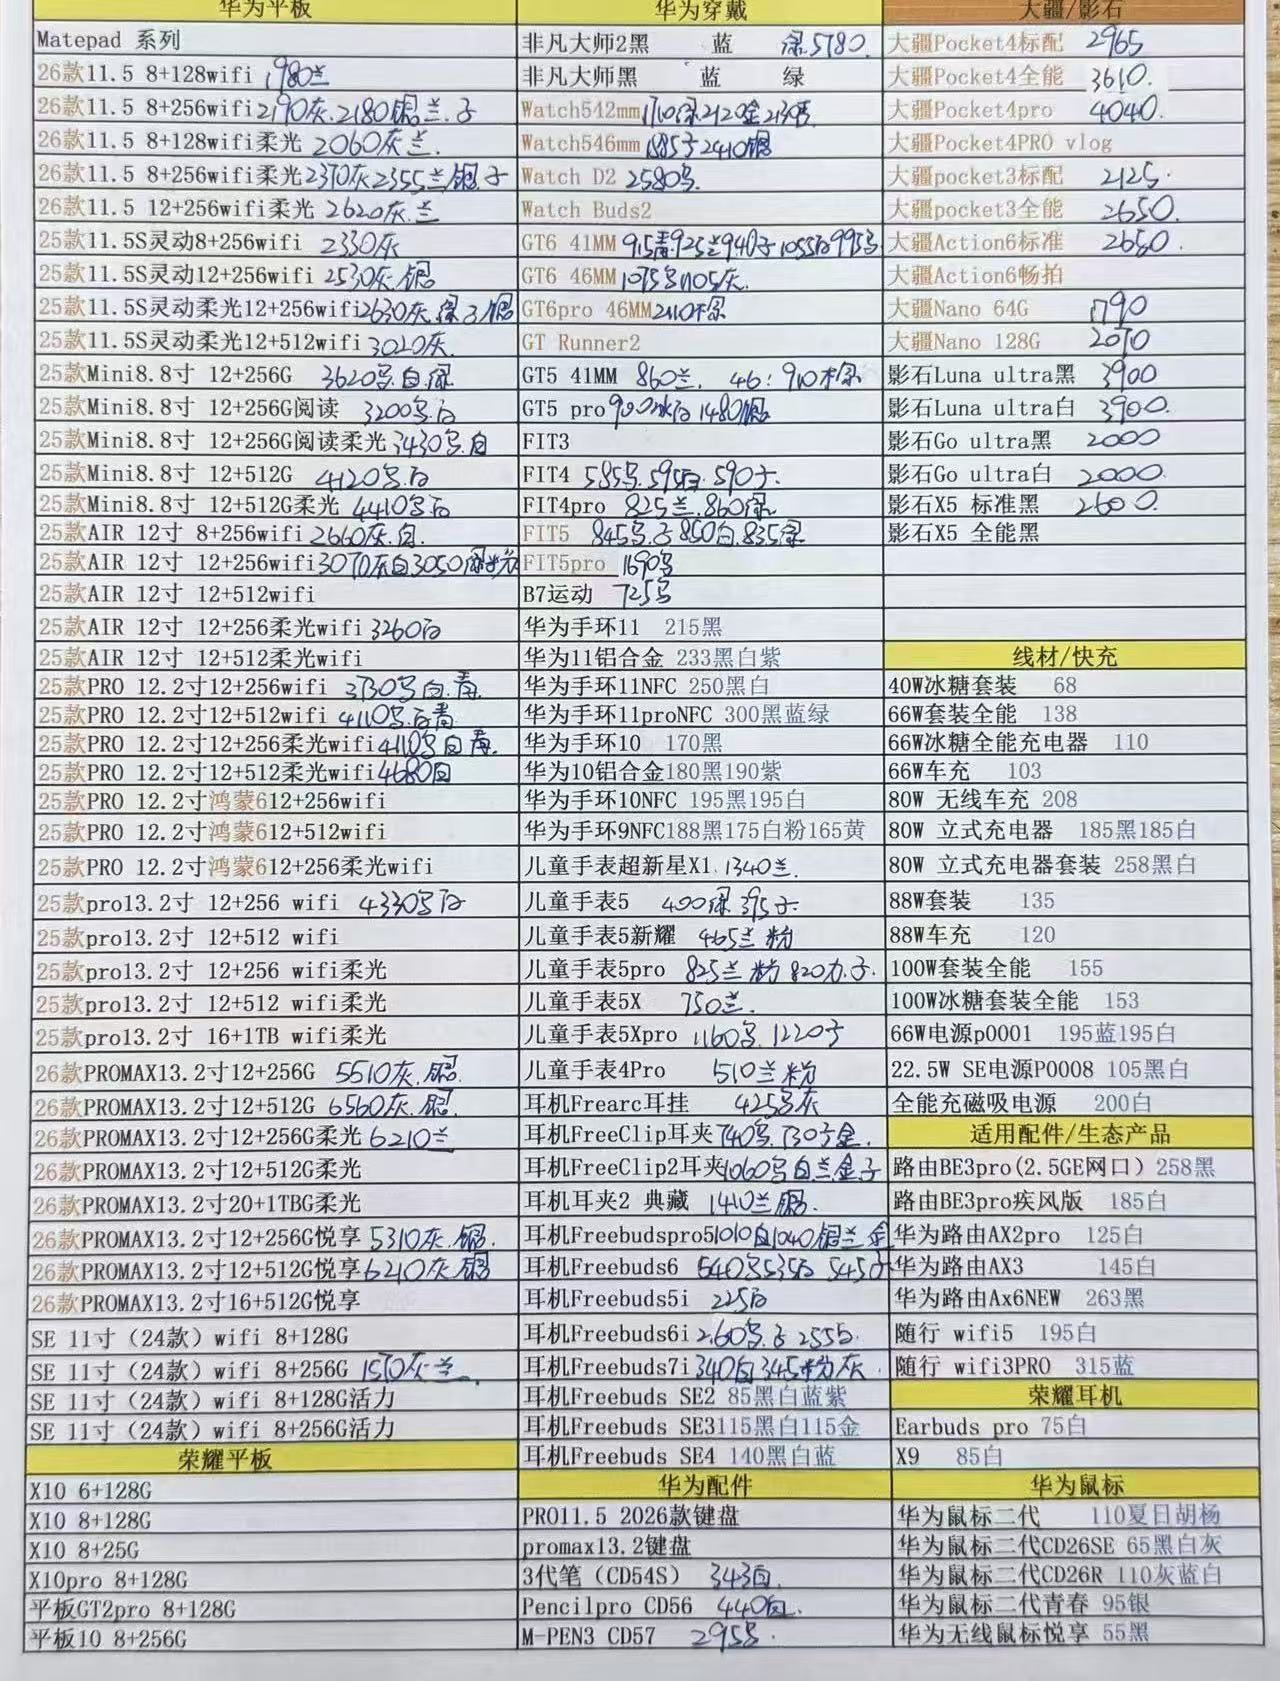 华为平板
Matepad 系列
26款11.5 8+128wifi 1980兰
26款11.5 8+256wifi 2190灰.2180银兰.子
26款11.5 8+128wifi柔光 2060灰兰.
26款11.5 8+256wifi柔光 2370灰2355兰银子
26款11.5 12+256wifi柔光 2620灰.兰
25款11.5S灵动8+256wifi 2330灰
25款11.5S灵动12+256wifi 2530灰.银
25款11.5S灵动柔光12+256wifi 2630灰.绿子银
25款11.5S灵动柔光12+512wifi 3020灰.
25款Mini8.8寸 12+256G 3620乌.白.绿
25款Mini8.8寸 12+256G阅读 3200乌.白
25款Mini8.8寸 12+256G阅读柔光 3430乌.白
25款Mini8.8寸 12+512G 4120乌.白
25款Mini8.8寸 12+512G柔光 4410乌白
25款AIR 12寸 8+256wifi 2660灰.白.
25款AIR 12寸 12+256wifi 3070灰白3050绿粉
25款AIR 12寸 12+512wifi
25款AIR 12寸 12+256柔光wifi 3260白
25款AIR 12寸 12+512柔光wifi
25款PRO 12.2寸12+256wifi 3730乌白.青.
25款PRO 12.2寸12+512wifi 4110乌.白青
25款PRO 12.2寸12+256柔光wifi 4110乌白青.
25款PRO 12.2寸12+512柔光wifi 4680白
25款PRO 12.2寸鸿蒙612+256wifi
25款PRO 12.2寸鸿蒙612+512wifi
25款PRO 12.2寸鸿蒙612+256柔光wifi
25款pro13.2寸 12+256 wifi 4330乌白
25款pro13.2寸 12+512 wifi
25款pro13.2寸 12+256 wifi柔光
25款pro13.2寸 12+512 wifi柔光
25款pro13.2寸 16+1TB wifi柔光
26款PROMAX13.2寸12+256G 5510灰.银.
26款PROMAX13.2寸12+512G 6560灰.银.
26款PROMAX13.2寸12+256G柔光 6210兰
26款PROMAX13.2寸12+512G柔光
26款PROMAX13.2寸20+1TBG柔光
26款PROMAX13.2寸12+256G悦享 5310灰.银.
26款PROMAX13.2寸12+512G悦享 6210灰银
26款PROMAX13.2寸16+512G悦享
SE 11寸（24款）wifi 8+128G
SE 11寸（24款）wifi 8+256G 1570灰兰.
SE 11寸（24款）wifi 8+128G活力
SE 11寸（24款）wifi 8+256G活力
荣耀平板
X10 6+128G
X10 8+128G
X10 8+25G
X10pro 8+128G
平板GT2pro 8+128G
平板10 8+256G
华为穿戴
非凡大师2黑 蓝 绿5780.
非凡大师黑 蓝 绿
Watch542mm 1710绿2120金2130青
Watch546mm 1885子2410银
Watch D2 2580乌.
Watch Buds2
GT6 41MM 915青925兰940子1055白995乌
GT6 46MM 1075乌1105灰.
GT6pro 46MM 2110棕
GT Runner2
GT5 41MM 860兰. 46: 910棕
GT5 pro 900冰白1480银
FIT3
FIT4 585乌.595白.590子.
FIT4pro 825兰.860绿
FIT5 845乌.子850白.835绿
FIT5pro 1690乌
B7运动 725乌
华为手环11 215黑
华为11铝合金 233黑白紫
华为手环11NFC 250黑白
华为手环11proNFC 300黑蓝绿
华为手环10 170黑
华为10铝合金180黑190紫
华为手环10NFC 195黑195白
华为手环9NFC188黑175白粉165黄
儿童手表超新星X1 1340兰.
儿童手表5 400绿.395子.
儿童手表5新耀 465兰 粉
儿童手表5pro 825兰 粉 820力.子.
儿童手表5X 750兰.
儿童手表5Xpro 1160乌.1220子
儿童手表4Pro 510兰 粉
耳机Frearc耳挂 425乌灰
耳机FreeClip耳夹 740乌.730子金.
耳机FreeClip2耳夹 1060乌白兰金子
耳机耳夹2 典藏 1410兰银.
耳机Freebudspro5 1010白1040银兰金
耳机Freebuds6 540乌535白 545子
耳机Freebuds5i 225白
耳机Freebuds6i 260乌.子255白.
耳机Freebuds7i 340白345粉灰.
耳机Freebuds SE2 85黑白蓝紫
耳机Freebuds SE3115黑白115金
耳机Freebuds SE4 140黑白蓝
华为配件
PRO11.5 2026款键盘
promax13.2键盘
3代笔（CD54S） 343白.
Pencilpro CD56 440白.
M-PEN3 CD57 295乌.
大疆/影石
大疆Pocket4标配 2965
大疆Pocket4全能 3610.
大疆Pocket4pro 4040.
大疆Pocket4PRO vlog
大疆pocket3标配 2125.
大疆pocket3全能 2650.
大疆Action6标准 2680.
大疆Action6畅拍
大疆Nano 64G 1790
大疆Nano 128G 2070
影石Luna ultra黑 3900
影石Luna ultra白 3900.
影石Go ultra黑 2000
影石Go ultra白 2000.
影石X5 标准黑 2600.
影石X5 全能黑
线材/快充
40W冰糖套装 68
66W套装全能 138
66W冰糖全能充电器 110
66W车充 103
80W 无线车充 208
80W 立式充电器 185黑185白
80W 立式充电器套装 258黑白
88W套装 135
88W车充 120
100W套装全能 155
100W冰糖套装全能 153
66W电源p0001 195蓝195白
22.5W SE电源P0008 105黑白
全能充磁吸电源 200白
适用配件/生态产品
路由BE3pro(2.5GE网口）258黑
路由BE3pro疾风版 185白
华为路由AX2pro 125白
华为路由AX3 145白
华为路由Ax6NEW 263黑
随行 wifi5 195白
随行 wifi3PRO 315蓝
荣耀耳机
Earbuds pro 75白
X9 85白
华为鼠标
华为鼠标二代 110夏日胡杨
华为鼠标二代CD26SE 65黑白灰
华为鼠标二代CD26R 110灰蓝白
华为鼠标二代青春 95银
华为无线鼠标悦享 55黑